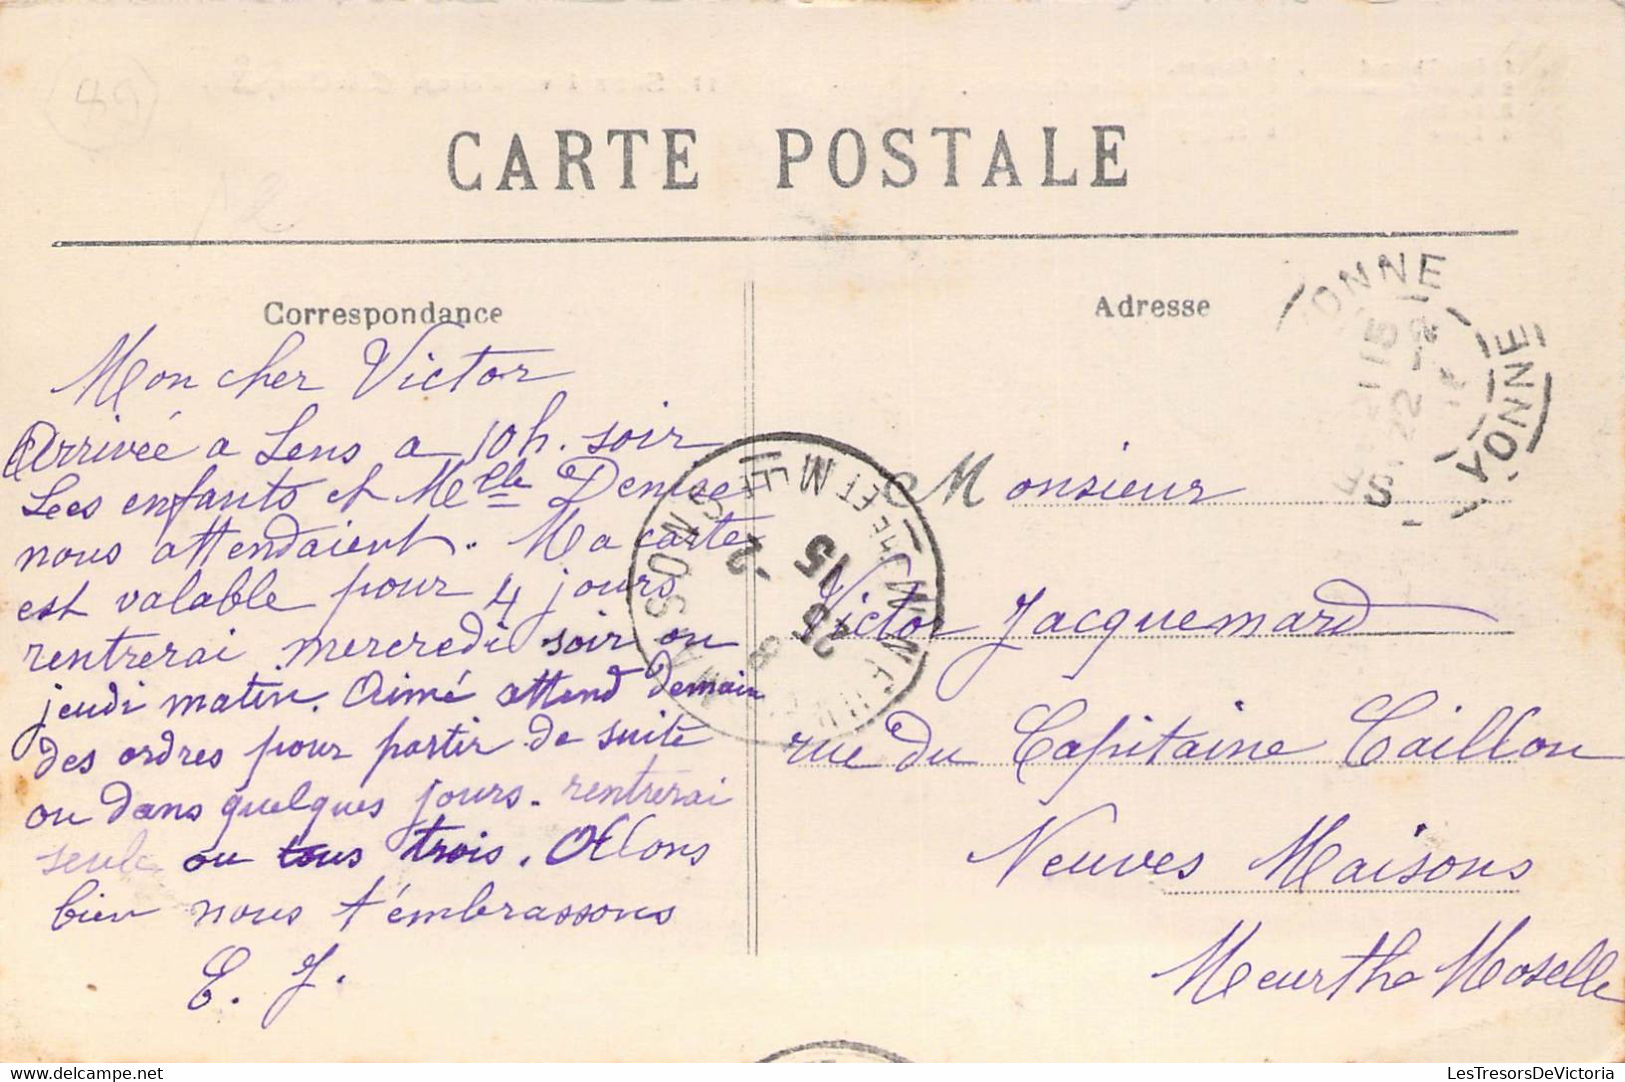 49
CARTE POSTALE
Correspondance
Mon cher Victor
Arrivée a Sens a 10h. soir
Les enfants et Melle Denise
nous attendaient. Ma carte
est valable pour 4 jours
rentrerai mercredi soir ou
jeudi matin. Aimé attend demain
des ordres pour partir de suite
ou dans quelques jours. rentrerai
seule ou tous trois. Allons
bien nous t'embrassons
E. J.
Adresse
YONNE
Monsieur
Victor Jacquemard
rue du Capitaine Caillon
Neuves Maisons
Meurthe Moselle
MAISONS
25 - 2
15
MTHE ET MLLE
www.delcampe.net
LesTresorsDeVictoria